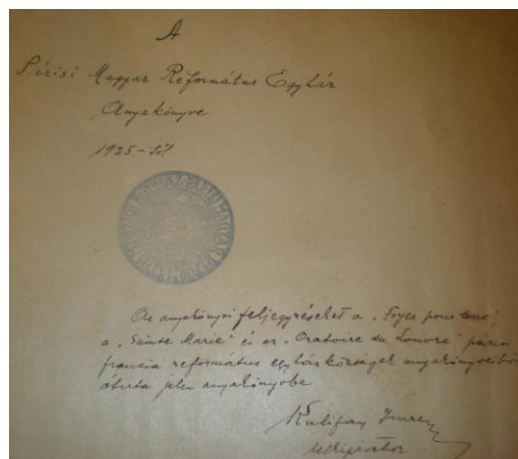 A
Párisi Magyar Református Egyház
Anyakönyve
1925.-től
Az anyakönyvi feljegyzéseket a „Foyer pour tous",
a „Sainte Marie" és az „Oratoire du Louvre" párisi
francia református egyházközségek anyakönyveiből
átírta jelen anyakönyvbe
Kulifay Imre
lelkipásztor